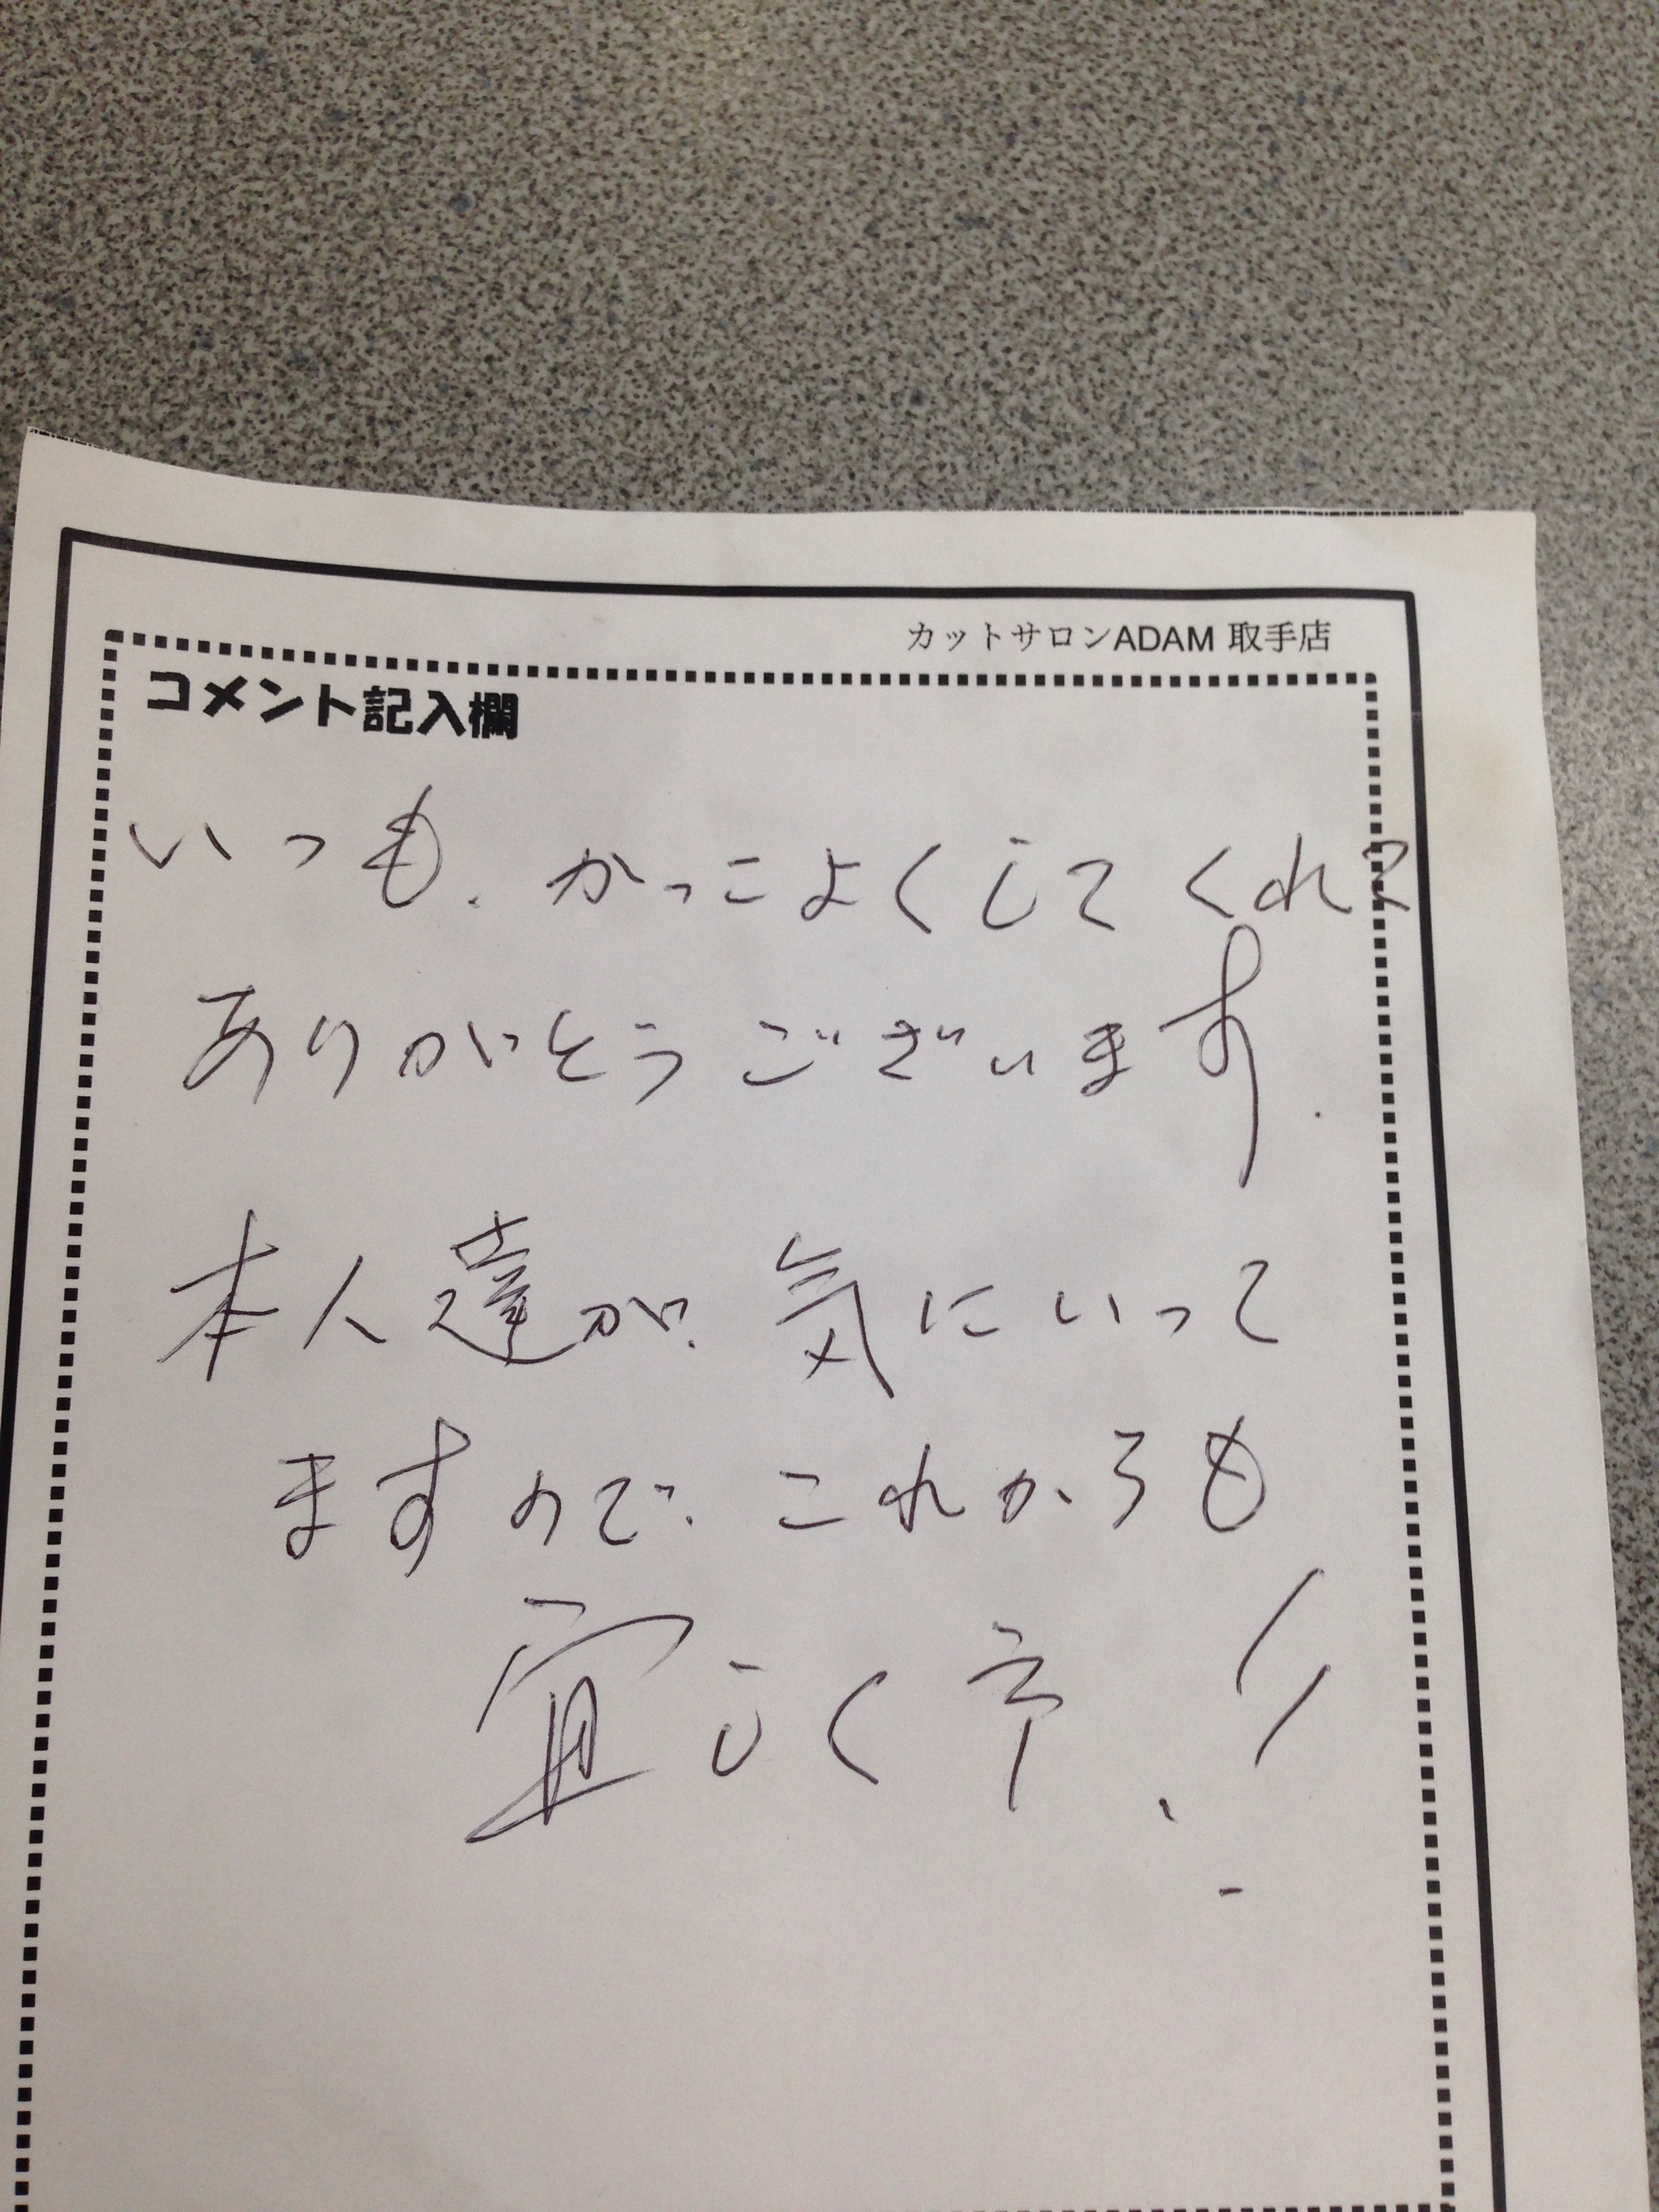 カットサロンADAM 取手店
コメント記入欄
いつも、かっこよくしてくれて
ありがとうございます。
本人達が、気にいって
ますので、これからも
宜しく